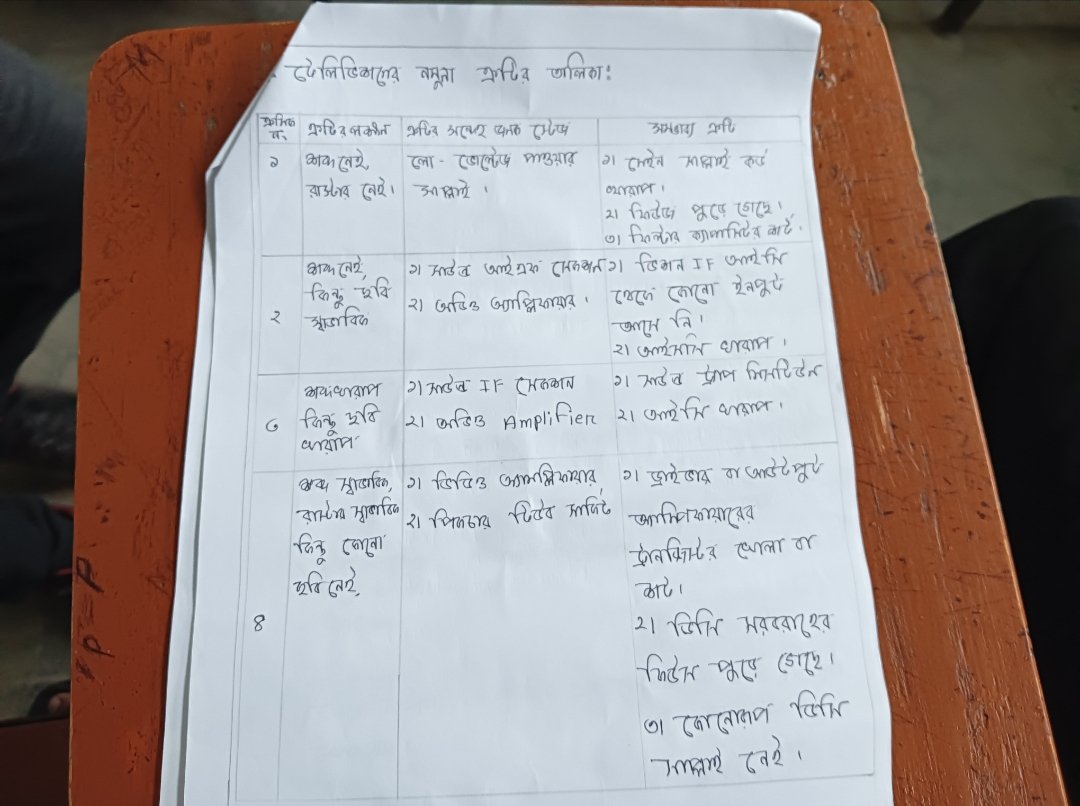 টেলিভিশনের নমুনা ত্রুটির তালিকা:
ক্রমিক নং
ত্রুটির লক্ষণ
ত্রুটির সন্দেহ জনক স্টেজ
সম্ভাব্য ত্রুটি
১
শব্দ নেই,
রাস্টার নেই।
লো - ভোল্টেজ পাওয়ার
সাপ্লাই।
১। মেইন সাপ্লাই কর্ড
খারাপ।
২। ফিউজ পুড়ে গেছে।
৩। ফিল্টার ক্যাপাসিটর শর্ট।
২
শব্দ নেই,
কিন্তু ছবি
স্বাভাবিক
১। সাউন্ড আই এফ সেকশন
২। অডিও অ্যাম্প্লিফায়ার।
১। ভিশন IF আইসি
থেকে কোনো ইনপুট
আসে নি।
২। আইসি খারাপ।
৩
শব্দ খারাপ
কিন্তু ছবি
খারাপ
১। সাউন্ড IF সেকশান
২। অডিও Amplifier
১। সাউন্ড ট্রাপ
২। আইসি খারাপ।
৪
শব্দ স্বাভাবিক,
রাস্টার স্বাভাবিক
কিন্তু কোনো
ছবি নেই,
১। ভিডিও অ্যামপ্লিফায়ার,
২। পিকচার টিউব সার্কিট
১। ড্রাইভার বা আউটপুট
অ্যামপ্লিফায়ারের
ট্রানজিস্টর খোলা বা
শর্ট।
২। ডিসি সরবরাহের
ফিউস পুড়ে গেছে।
৩। কোনোরূপ ডিসি
সাপ্লাই নেই।